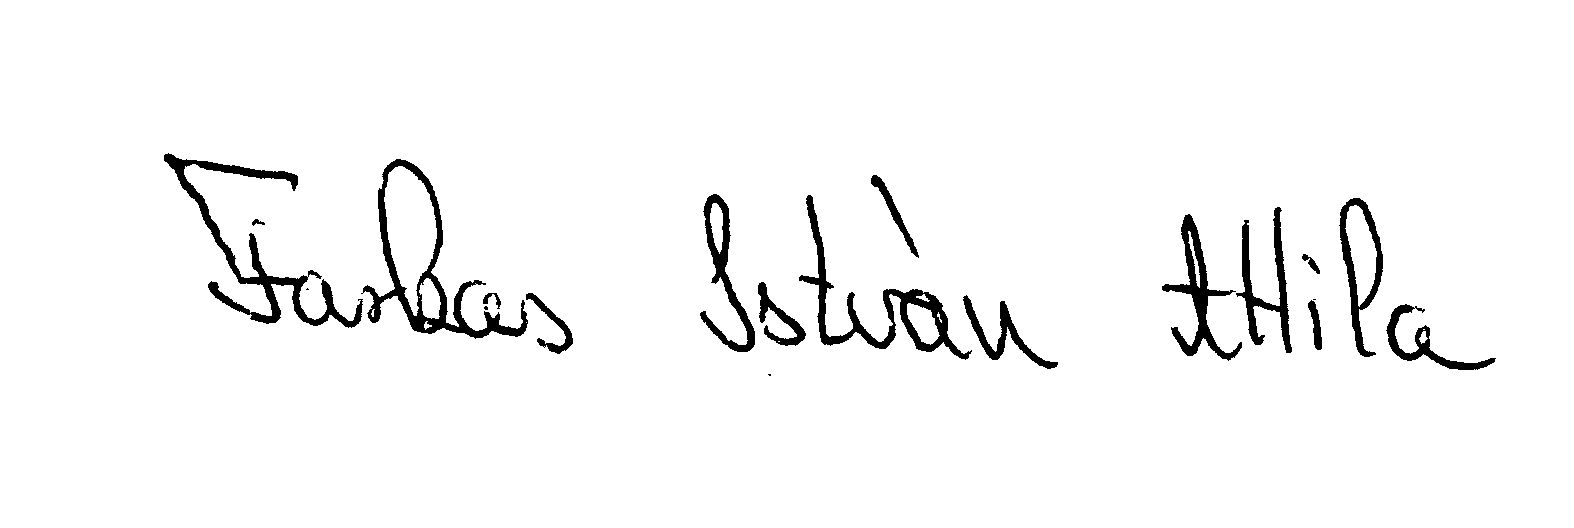 Farkas István Attila